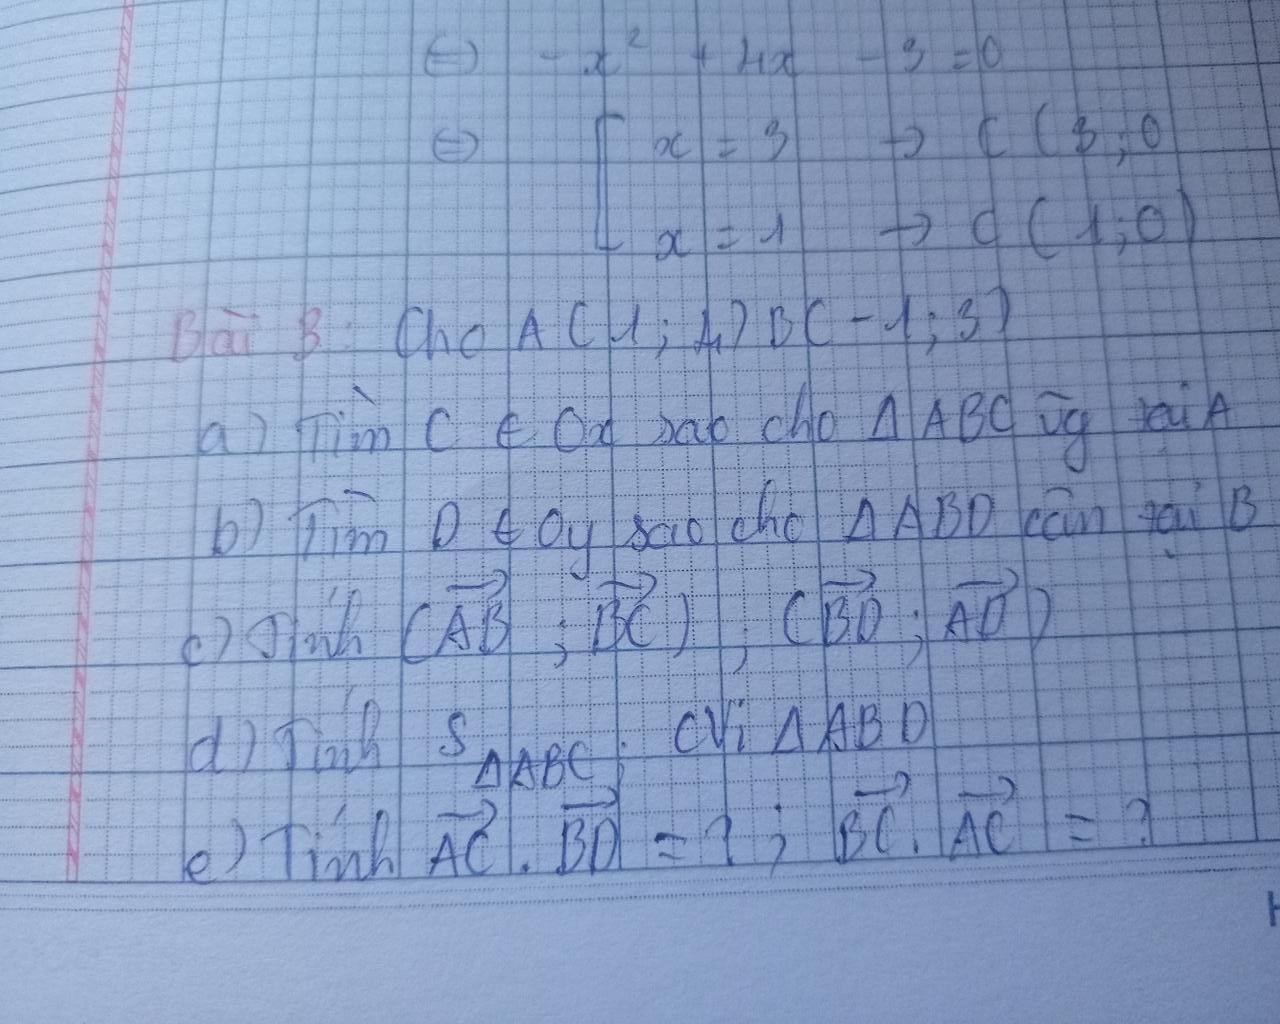 ⇔ -x² + 4x - 3 = 0
⇔ [ x = 3 → C (3 ; 0
x = 1 → C (1 ; 0)
Bài 3: Cho A (1 ; 4) B (-1 ; 3)
a) Tìm C ∈ Ox sao cho Δ ABC vg tại A
b) Tìm D ∈ Oy sao cho Δ ABD cân tại B
c) Tính (\overrightarrow{AB} ; \overrightarrow{BC}) ; (\overrightarrow{BD} ; \overrightarrow{AD})
d) Tính S_{ΔABC} ; CVi Δ ABD
e) Tính \overrightarrow{AC} . \overrightarrow{BD} = ? ; \overrightarrow{BC} . \overrightarrow{AC} = ?